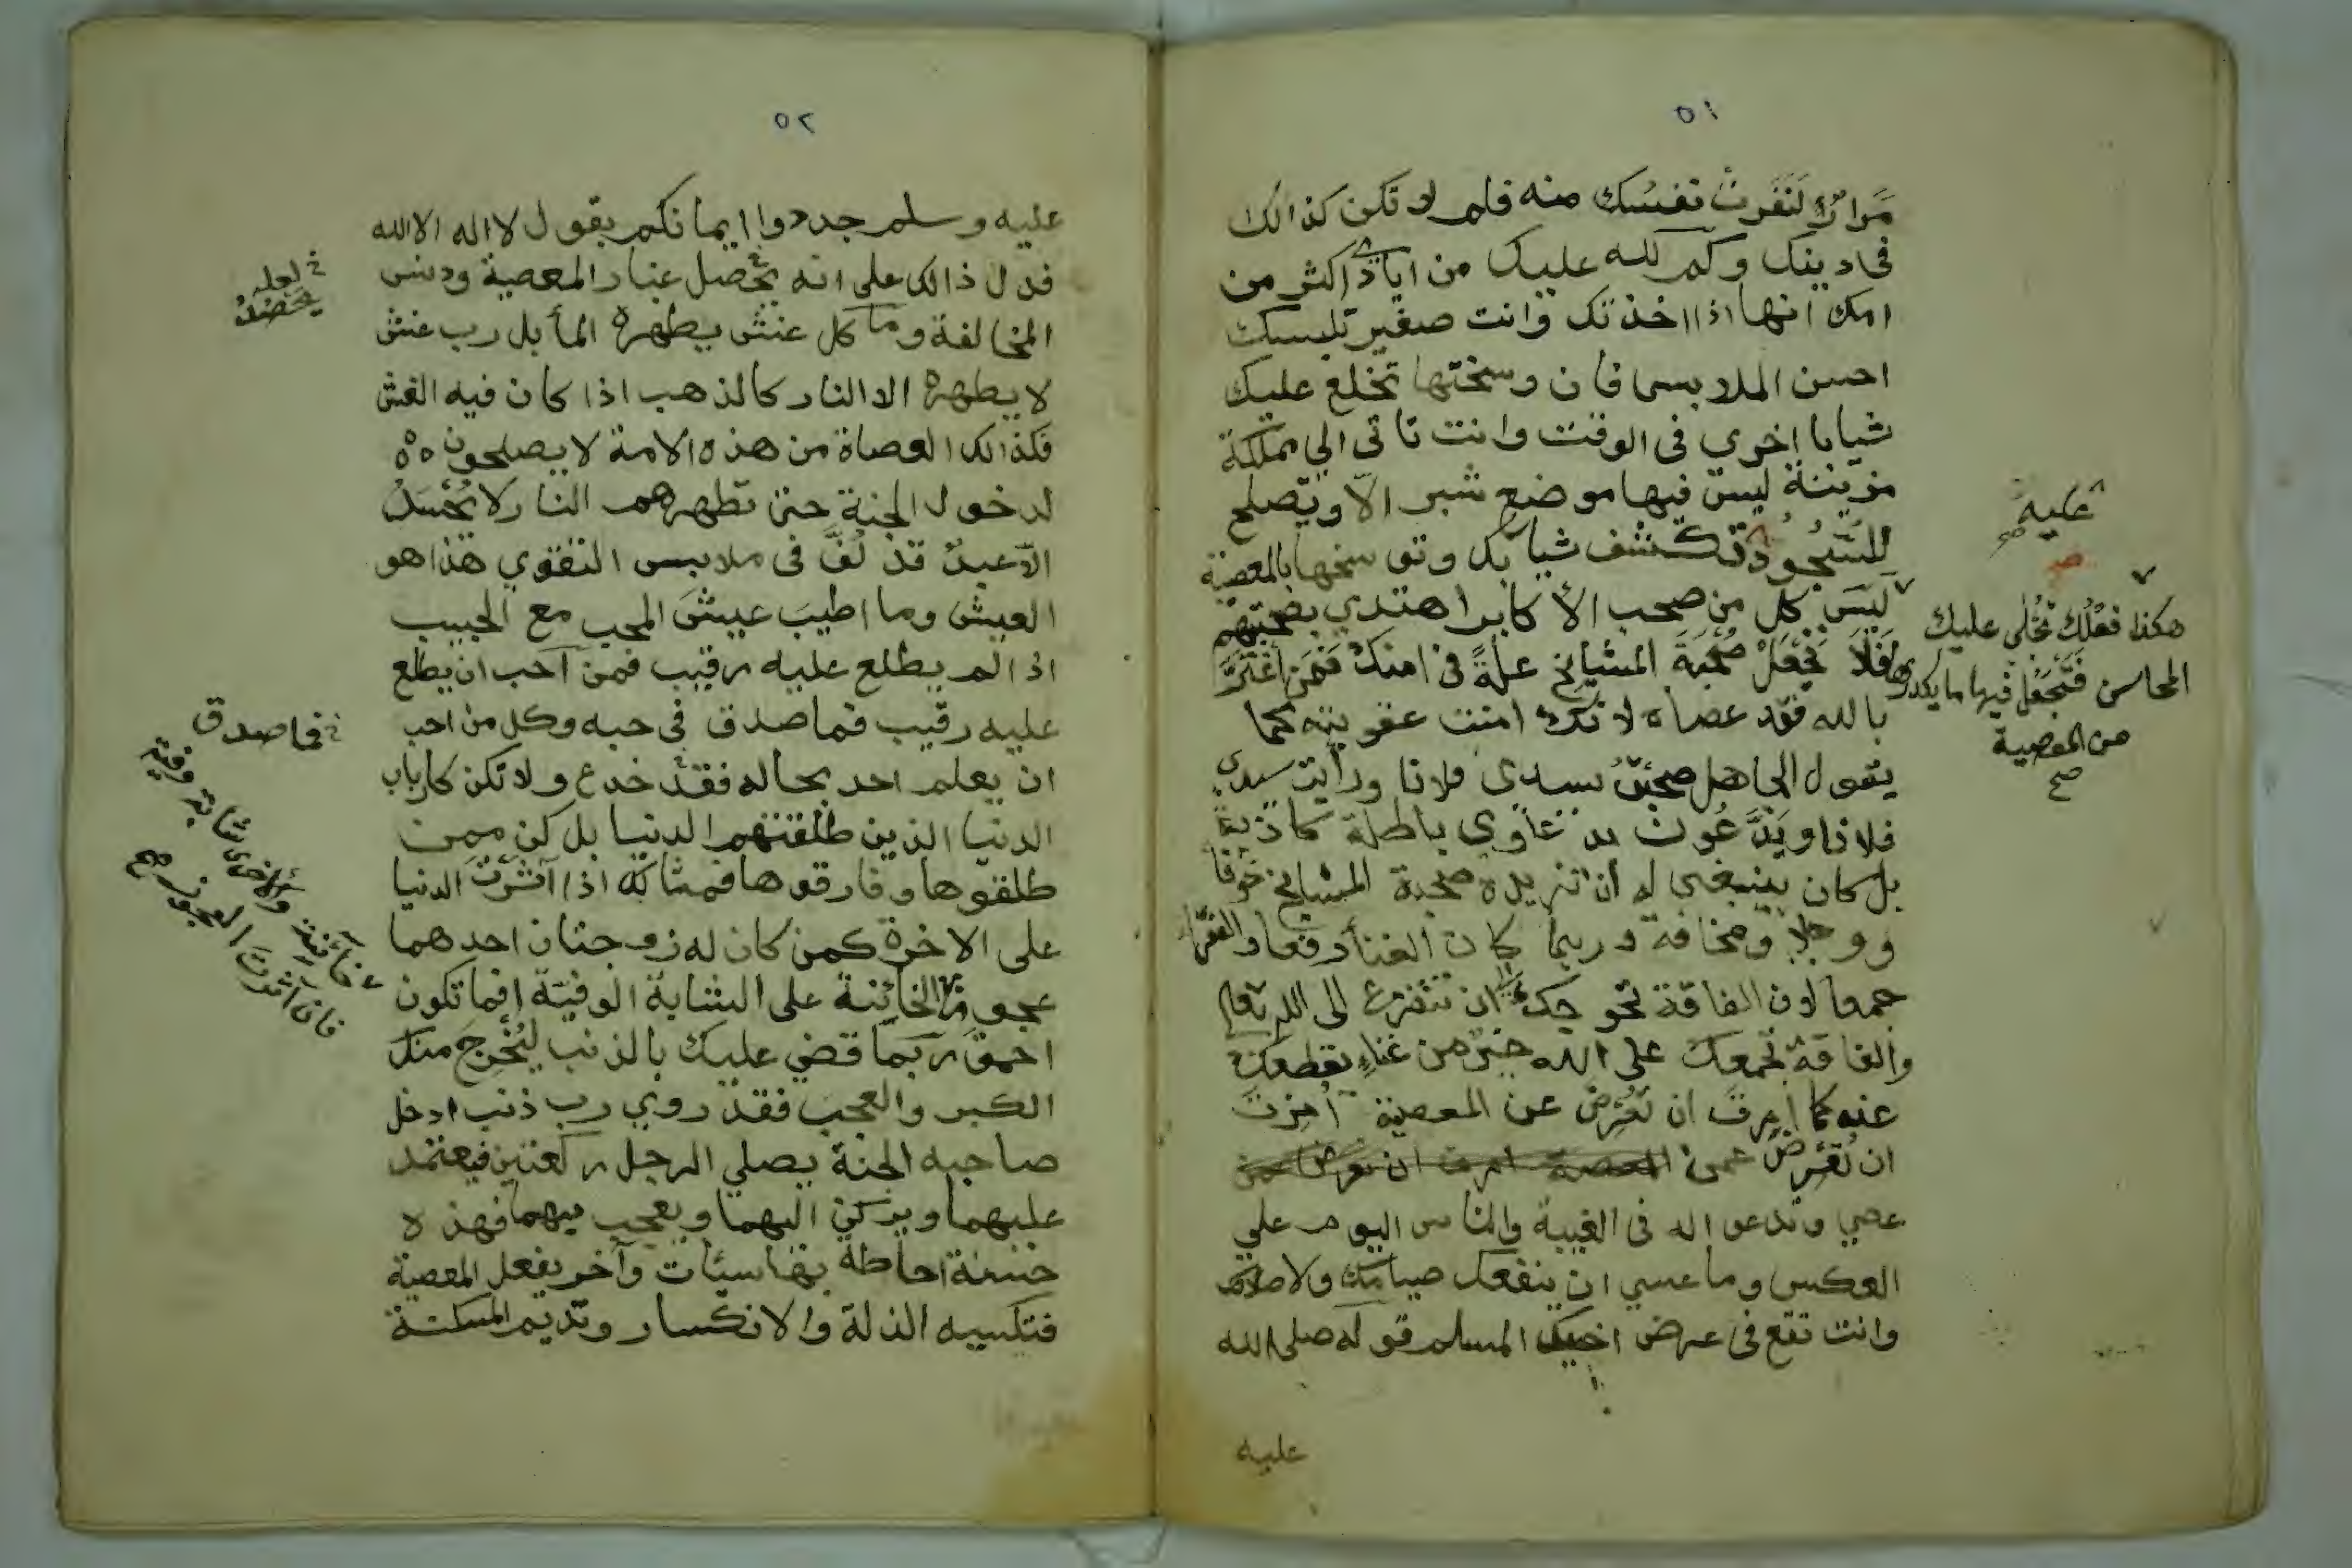 ٥١
مرارًا لنفرت نفسك منه فلم لا تكن كذالك
في دينك وكم لله عليك من اياد اكثر من
امك انها اذا اخذتك وانت صغير تلبسك
احسن الملابس فان وسختها تخلع عليك
ثيابا اخرى في الوقت وانت تاتي الي مملكة
مزينة ليس فيها موضع شبر الّا ويصلح
للسجود فتكشف ثيابك وتوسخها بالمعصية
ليس كل من صحب الأكابر اهتدي بصحبتهم
فلا تجعل صحبة المشايخ علة في امنك فمن اغترّ
بالله فقد عصاه لانك امنت عقوبته كما
يقول الجاهل صحبت سيدي فلانا ورأيت سيدي
فلانا ويدّعون دعاوي باطلة كاذبة
بل كان ينبغي له أن تزيده صحبة المشايخ خوفا
ووجلا ومخافة وربما كان الغنأ دفعا والفقر
جمعا لان الفاقة تحوجك ان تتضرع الى الله تعالى
والفاقة تجمعك على الله خير من غناء يقطعك
عنه كما امرت ان تعرض عن المعصية امرت
ان تعرض عمن
عصي وتدعو اله في الغيبة والناس اليوم علي
العكس وما عسي ان ينفعك صيامك ولا صلاتك
وانت تقع في عرض اخيك المسلم قوله صلى الله
عليه
عليه
صح
هكذا فعلك تجلى عليك
المحاسن فتجعل فيها ما يكدرها
من المعصية
صح
٥٢
عليه وسلم جددوا ايمانكم بقول لا اله الا الله
فدل ذالك على انه يحصل غبار المعصية ودنس
المخالفة وما كل غش يطهره المأ بل رب غش
لا يطهره الا النار كالذهب اذا كان فيه الغش
فكذالك العصاة من هذه الامة لا يصلحون
لدخول الجنة حتى تطهرهم النار لا يحسد
الّا عبد قد لفّ في ملابس التقوي هذا هو
العيش وما اطيب عيش المحب مع الحبيب
اذا لم يطلع عليه رقيب فمن آحب ان يطلع
عليه رقيب فما صدق في حبه وكل من احب
ان يعلم احد بحاله فقد خدع ولا تكن كارباب
الدنيا الذين طلقتهم الدنيا بل كن ممن
طلقوها وفارقوها فمثالك اذا آثرت الدنيا
على الاخرة كمن كان له زوجتان احدهما
عجوزة الخائنة على الشابة الوفية افما تكون
احمق ربما قضي عليك بالذنب ليخرج منك
الكبر والعجب فقد روي رب ذنب ادخل
صاحبه الجنة يصلي الرجل ركعتين فيعتمد
عليهما ويركن اليهما ويعجب فيهما فهذه
حسنة احاطة بها سيئات وآخر يفعل المعصية
فتكسبه الذلة والانكسار وتديم المسكنة
خ لعله
يحصد
خ فما صدق
خائنة والاخرى شابة وفية
فان آثرت العجوز صح